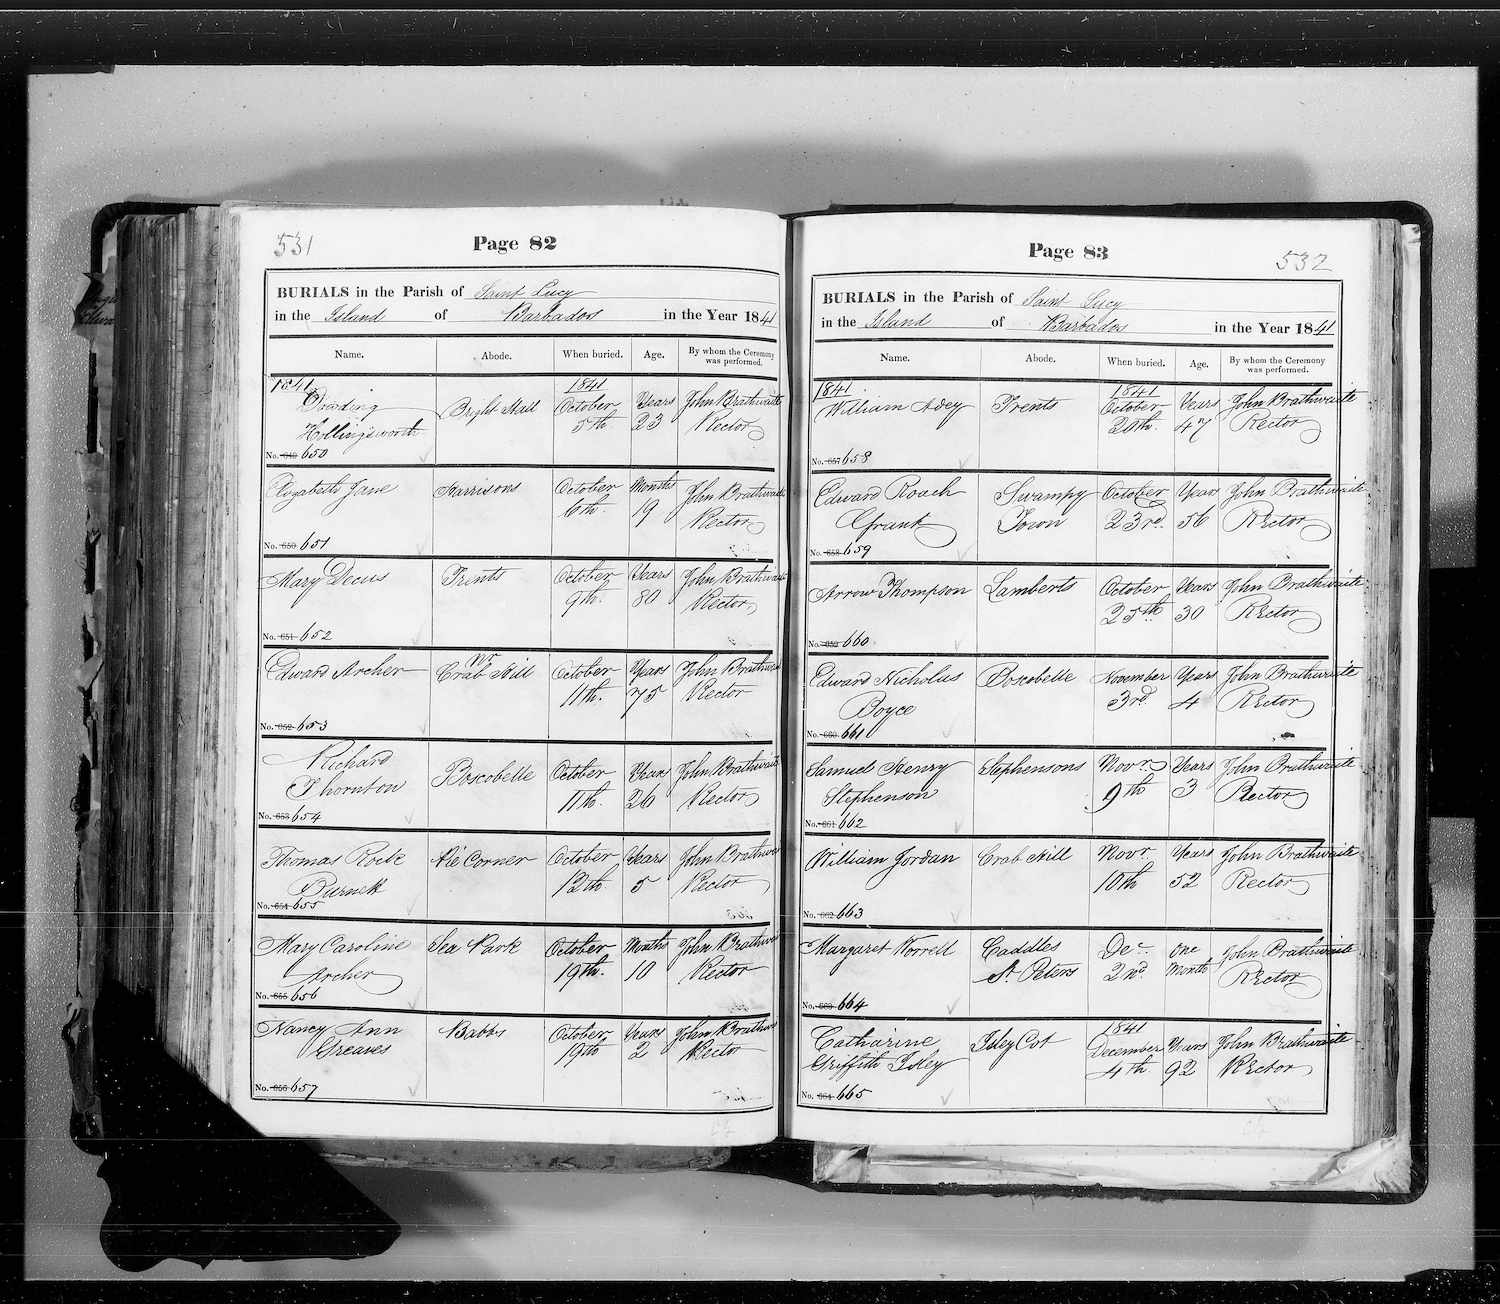 531
Page 82
BURIALS in the Parish of Saint Lucy
in the Island of Barbados in the Year 1841
Name. Abode. When buried. Age. By whom the Ceremony was performed.
1841 1841
Dearding Bright Hall October Years John Brathwaite
Hollingsworth 5th 23 Rector
No. 649 650
Elizabeth Jane Harrisons October Months John Brathwaite
6th. 19 Rector
No. 650 651
Mary Decus Trents October Years John Brathwaite
9th. 80 Rector
No. 651 652
Edward Archer Nr Crab Hill October Years John Brathwaite
11th. 75 Rector
No. 652 653
Richard Boscobelle October Years John Brathwaite
Thornton 11th. 26 Rector
No. 653 654
Thomas Rock Pie Corner October Years John Brathwaite
Burnett 12th 5 Rector
No. 654 655
Mary Caroline Sea Park October Months John Brathwaite
Archer 19th. 10 Rector
No. 655 656
Nancy Ann Babbs October Years John Brathwaite
Greaves 19th 2 Rector
No. 656 657
Page 83
532
BURIALS in the Parish of Saint Lucy
in the Island of Barbados in the Year 1841
Name. Abode. When buried. Age. By whom the Ceremony was performed.
1841 1841
William Adey Trents October Years John Brathwaite
20th. 47 Rector
No. 657 658
Edward Roach Swampy October Years John Brathwaite
Grant Town 23rd. 56 Rector
No. 658 659
Arrow Thompson Lamberts October Years John Brathwaite
25th 30 Rector
No. 659 660
Edward Nicholus Boscobelle November Years John Brathwaite
Boyce 3rd 4 Rector
No. 660 661
Samuel Henry Stephensons Novr. Years John Brathwaite
Stephenson 9th 3 Rector
No. 661 662
William Jordan Crab Hill Novr. Years John Brathwaite
10th 52 Rector
No. 662 663
Margaret Worrell Caddles Dec One John Brathwaite
St. Peters 2nd. Month Rector
No. 663 664
1841
Catharine Isley Cot December Years John Brathwaite
Griffith Isley 4th. 92 Rector
No. 664 665